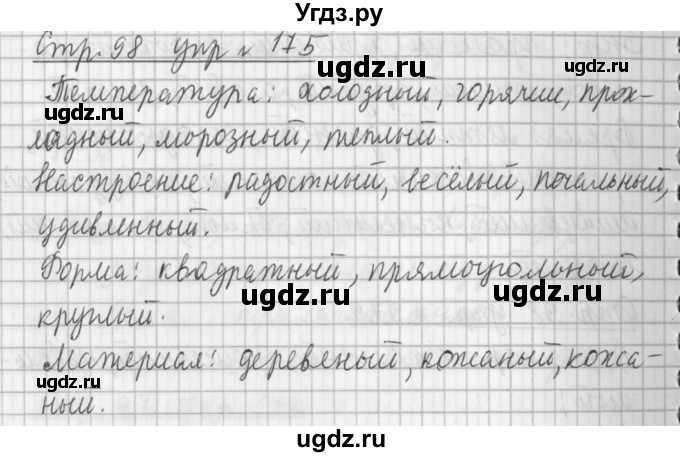 Угдз.ру
Стр. 98 упр № 175
ugdz.ru
ugdz.ru
Температура: холодный, горячии, прох-
ladный, морозный, теплый.
ugdz.ru
Настроение: радостный, весёлый, печальный,
ugdz.ru
удивленный.
Форма: квадратный, прямоугольный,
ugdz.ru
ugdz.ru
круглый.
Материал: деревеный, кожаный, кожа-
ugdz.ru
ugdz.ru
ный.
ugdz.ru